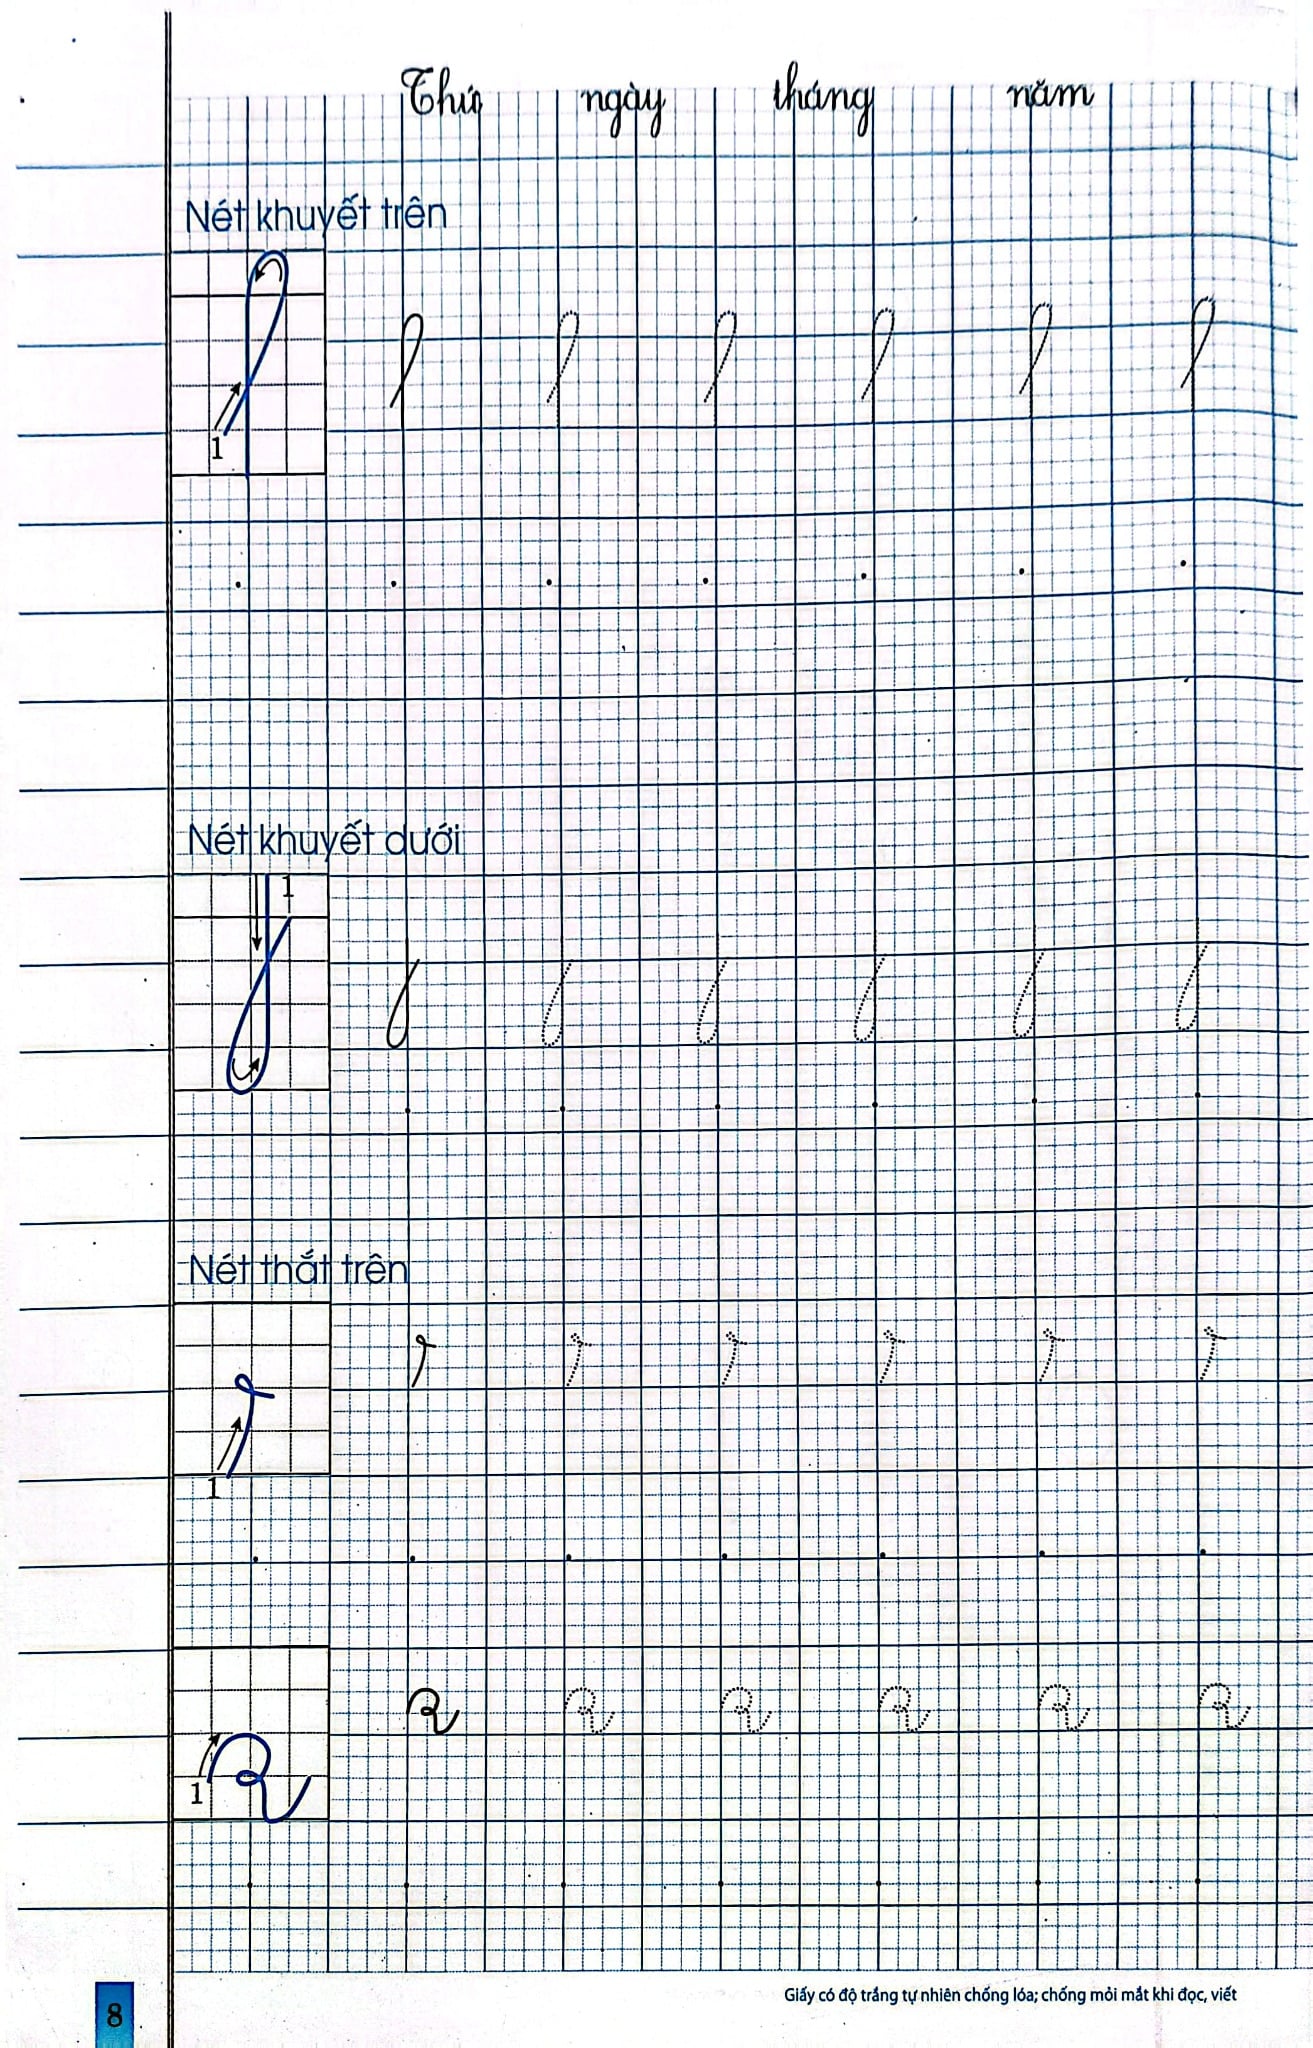 Thứ ngày tháng năm
Nét khuyết trên
1
Nét khuyết dưới
1
Nét thắt trên
1
1
Giấy có độ trắng tự nhiên chống lóa; chống mỏi mắt khi đọc, viết
8